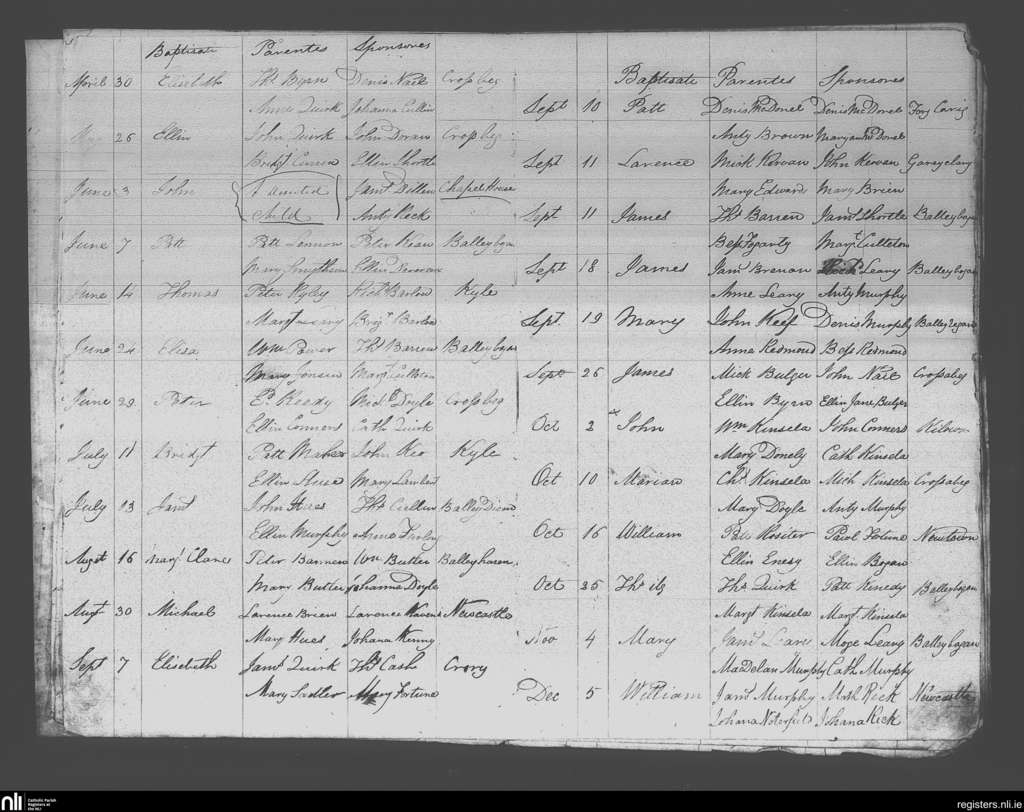 Baptisati Parentes Sponsores
April 30 Elisebeth Ths Byrn Denis Nail Crosbeg
Anne Quirk Johanna Cullin
26 Ellin John Quirk John Doran Crosbeg
Bridgt Ellin Shortle
June 3 John child Jams Dillon Chapel House
Anty Keck
June 7 Patt Patt Lennon Peter Kean Balleybogan
Mary Ellin
June 14 Thomas Peter Kyley Richd Barlow Kyle
Margt Bridgt Barlow
June 24 Elisa Wm Power Ths Barrow Balleybogan
Mary Jonson Margt Culleton
June 29 Peter Ed Keedy Micl Doyle Crosbeg
Ellin Conners Cath Quirk
July 11 Bridgt Patt Maher John Keo Kyle
Ellin Mary Lambert
July 13 Jams John Hues Ths Cullin Balley
Ellin Murphy Anne
Augst 16 Margt Clare Peter Banner Wm Butler Balleyhoren
Mary Butler Johanna Doyle
Augt 30 Michael Larence Brien Larence Kavens Newcastle
Mary Hues Johana Kenny
Sept 7 Elisebeth Jams Quirk Ths Cash Crory
Mary Sadler Mary Fortune
Baptisati Parentes Sponsores
Sept 10 Patt Denis McDonel Denis McDonel Fory Carig
Anty Brown Maryann McDonel
Sept 11 Larence Mick Kervan John Kervan Garsyclary
Mary Edward Mary Brien
Sept 11 James Ths Barren Jams Shortle Balleybogan
Bess Fogarty Margt Culleton
Sept 18 James Jams Brenan Leary Balleybogan
Anne Leary Anty Murphy
Sept 19 Mary John Keef Denis Murphy Balleybogan
Anna Redmond Bess Redmond
Sept 26 James Mick Bulger John Nail Crossabeg
Ellin Byrn Ellin Jane Bulger
Oct 2 John Wm Kinsela John Conners
Mary Donely Cath Kinsela
Oct 10 Marian Chs Kinsela Mich Kinsela Crossabeg
Mary Doyle Anty Murphy
Oct 16 William Patt Rositer Paul Fortune Newtown
Ellin Enesy Ellin Bogan
Oct 25 Ths Ths Quirk Patt Kenedy Balleybogan
Margt Kinsela Margt Kinsela
Nov 4 Mary Jams Moge Leary Balleybogan
MaDelan Murphy Cath Murphy
Dec 5 William Jams Murphy Math Kick Newcastle
Johana Johana Kick
nli
Catholic Parish
Registers at
the NLI
registers.nli.ie